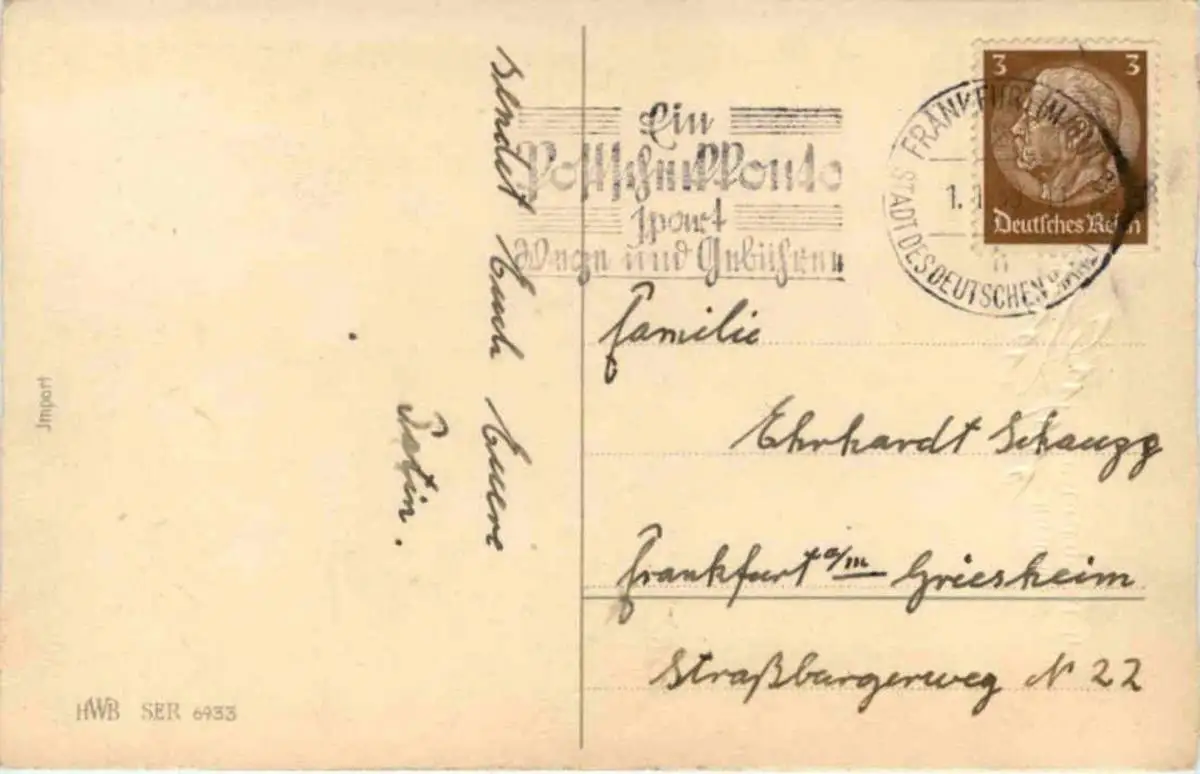 sendet Euch Euere
Patin.
Import
HWB SER 6933
Ein
Postscheckkonto
spart
Wege und Gebühren
FRANKFURT (MAIN)
1.
STADT DES DEUTSCHEN
3 3
Deutsches Reich
Familie
Ehrhardt Schaugg
Frankfurt a/m Griesheim
Straßburgerweg N 22